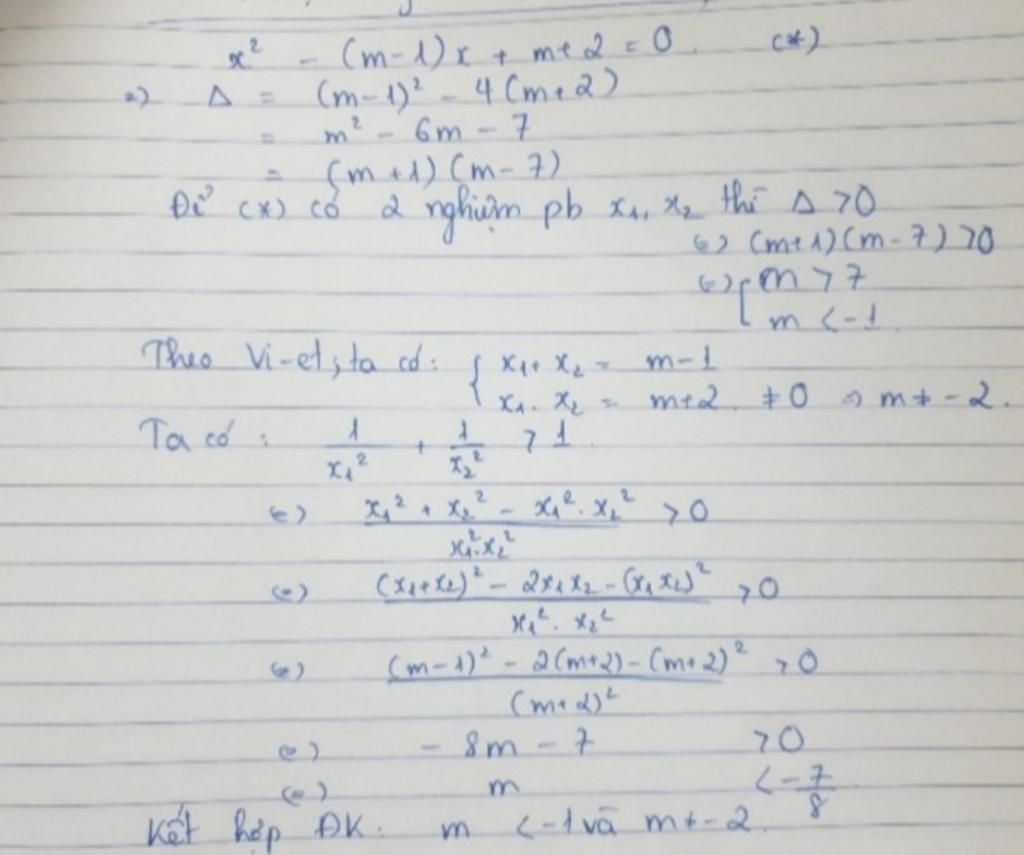 x² - (m-1)x + m+2 = 0. (*)
=) Δ = (m-1)² - 4(m+2)
= m² - 6m - 7
= (m+1)(m-7)
Để (*) có 2 nghiệm pb x₁, x₂ thì Δ > 0
(=) (m+1)(m-7) > 0
(=) [ m > 7
m < -1.
Theo Vi-et, ta có: { x₁ + x₂ = m-1
x₁. x₂ = m+2. ≠ 0 => m ≠ -2.
Ta có: 1/x₁² + 1/x₂² > 1.
(=) (x₁² + x₂² - x₁². x₂²)/(x₁².x₂²) > 0
(=) ((x₁+x₂)² - 2x₁x₂ - (x₁x₂)²)/(x₁². x₂²) > 0
(=) ((m-1)² - 2(m+2) - (m+2)²)/(m+2)² > 0
(=) - 8m - 7 > 0
(=) m < -7/8
Kết hợp ĐK: m < -1 và m ≠ -2.